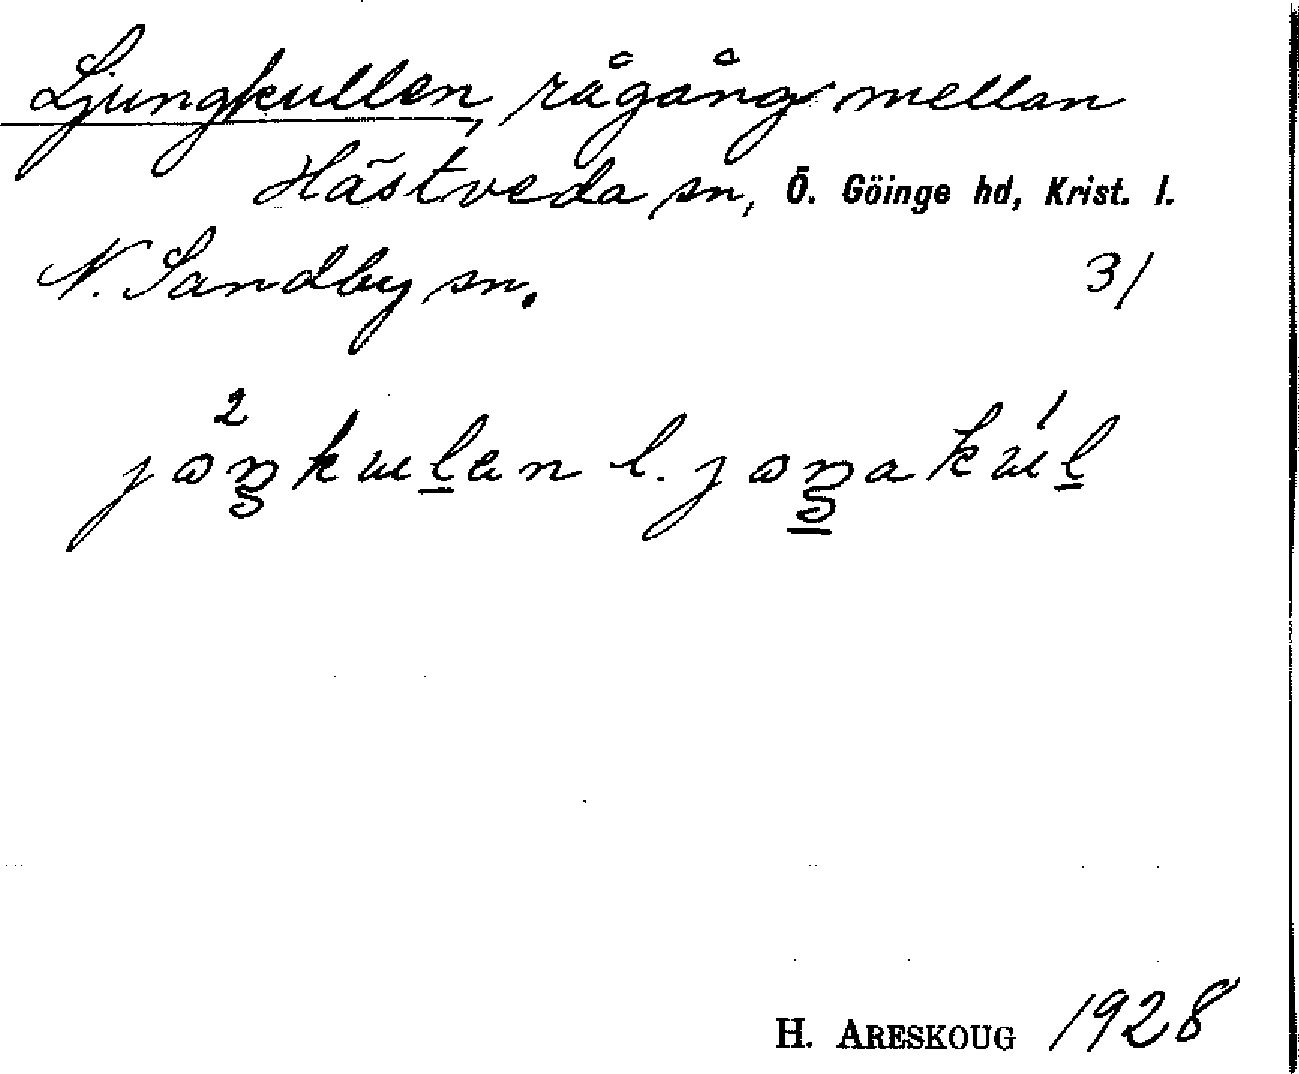 Ljungkullen, rågång mellan
Hästveda sn, Ö. Göinge hd, Krist. l.
N. Sandby sn. 31
l.
H. ARESKOUG 1928